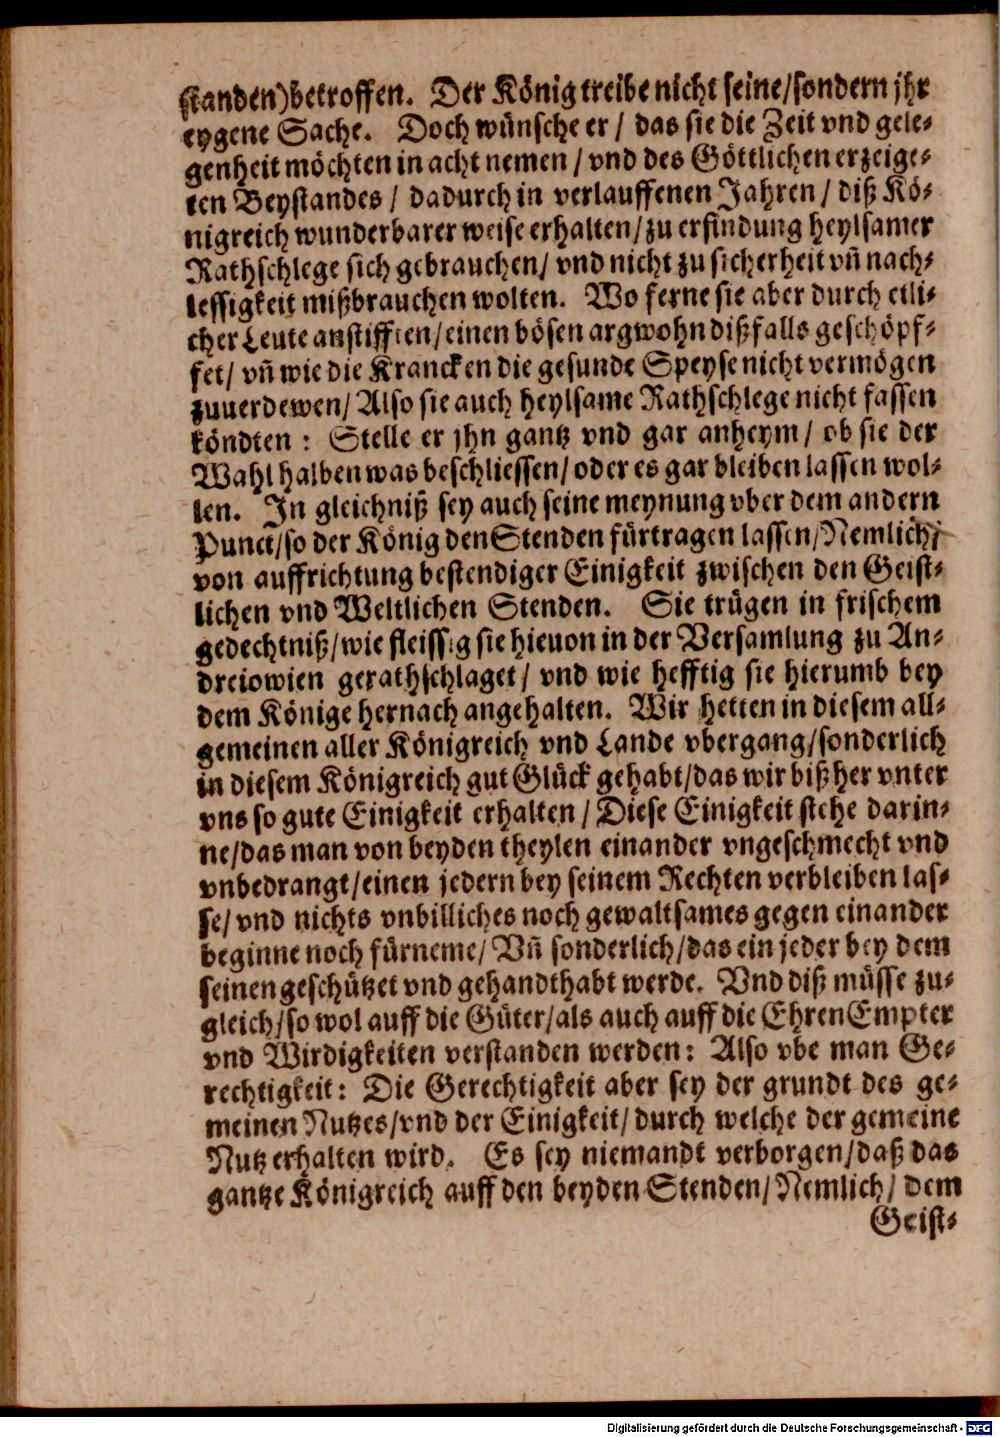 standen) betroffen. Der König treibe nicht seine/ sondern jhr
eygene Sache. Doch wünsche er / das sie die Zeit vnd gele-
genheit möchten in acht nemen / vnd des Göttlichen erzeige-
ten Beystandes / dadurch in verlauffenen Jahren / diß Kö-
nigreich wunderbarer weise erhalten/ zu erfindung heylsamer
Rathschlege sich gebrauchen/ vnd nicht zu sicherheit vn̄ nach-
lessigkeit mißbrauchen wolten. Wo ferne sie aber durch etli-
cher Leute anstifften/ einen bösen argwohn dißfalls geschöpf-
fet/ vn̄ wie die Krancken die gesunde Speyse nicht vermögen
zuuerdewen/ Also sie auch heylsame Rathschlege nicht fassen
köndten : Stelle er jhn gantz vnd gar anheym/ ob sie der
Wahl halben was beschliessen/ oder es gar bleiben lassen wol-
len. In gleichniß sey auch seine meynung vber dem andern
Punct/ so der König den Stenden fürtragen lassen/ Nemlich/
von auffrichtung bestendiger Einigkeit zwischen den Geist-
lichen vnd Weltlichen Stenden. Sie trügen in frischem
gedechtniß/ wie fleissig sie hieuon in der Versamlung zu An-
dreiowien gerathschlaget/ vnd wie hefftig sie hierumb bey
dem Könige hernach angehalten. Wir hetten in diesem all-
gemeinen aller Königreich vnd Lande vbergang/ sonderlich
in diesem Königreich gut Glück gehabt/ das wir biß her vnter
vns so gute Einigkeit erhalten / Diese Einigkeit stehe darin-
ne/ das man von beyden theylen einander vngeschmecht vnd
vnbedrangt/ einen jedern bey seinem Rechten verbleiben las-
se/ vnd nichts vnbilliches noch gewaltsames gegen einander
beginne noch fürneme/ Vn̄ sonderlich/ das ein jeder bey dem
seinen geschützet vnd gehandthabt werde. Vnd diß müsse zu-
gleich/ so wol auff die Güter/ als auch auff die Ehren Empter
vnd Wirdigkeiten verstanden werden: Also vbe man Ge-
rechtigkeit: Die Gerechtigkeit aber sey der grundt des ge-
meinen Nutzes/ vnd der Einigkeit/ durch welche der gemeine
Nutz erhalten wird. Es sey niemandt verborgen/ daß das
gantze Königreich auff den beyden Stenden/ Nemlich/ dem
Geist-
Digitalisierung gefördert durch die Deutsche Forschungsgemeinschaft - DFG